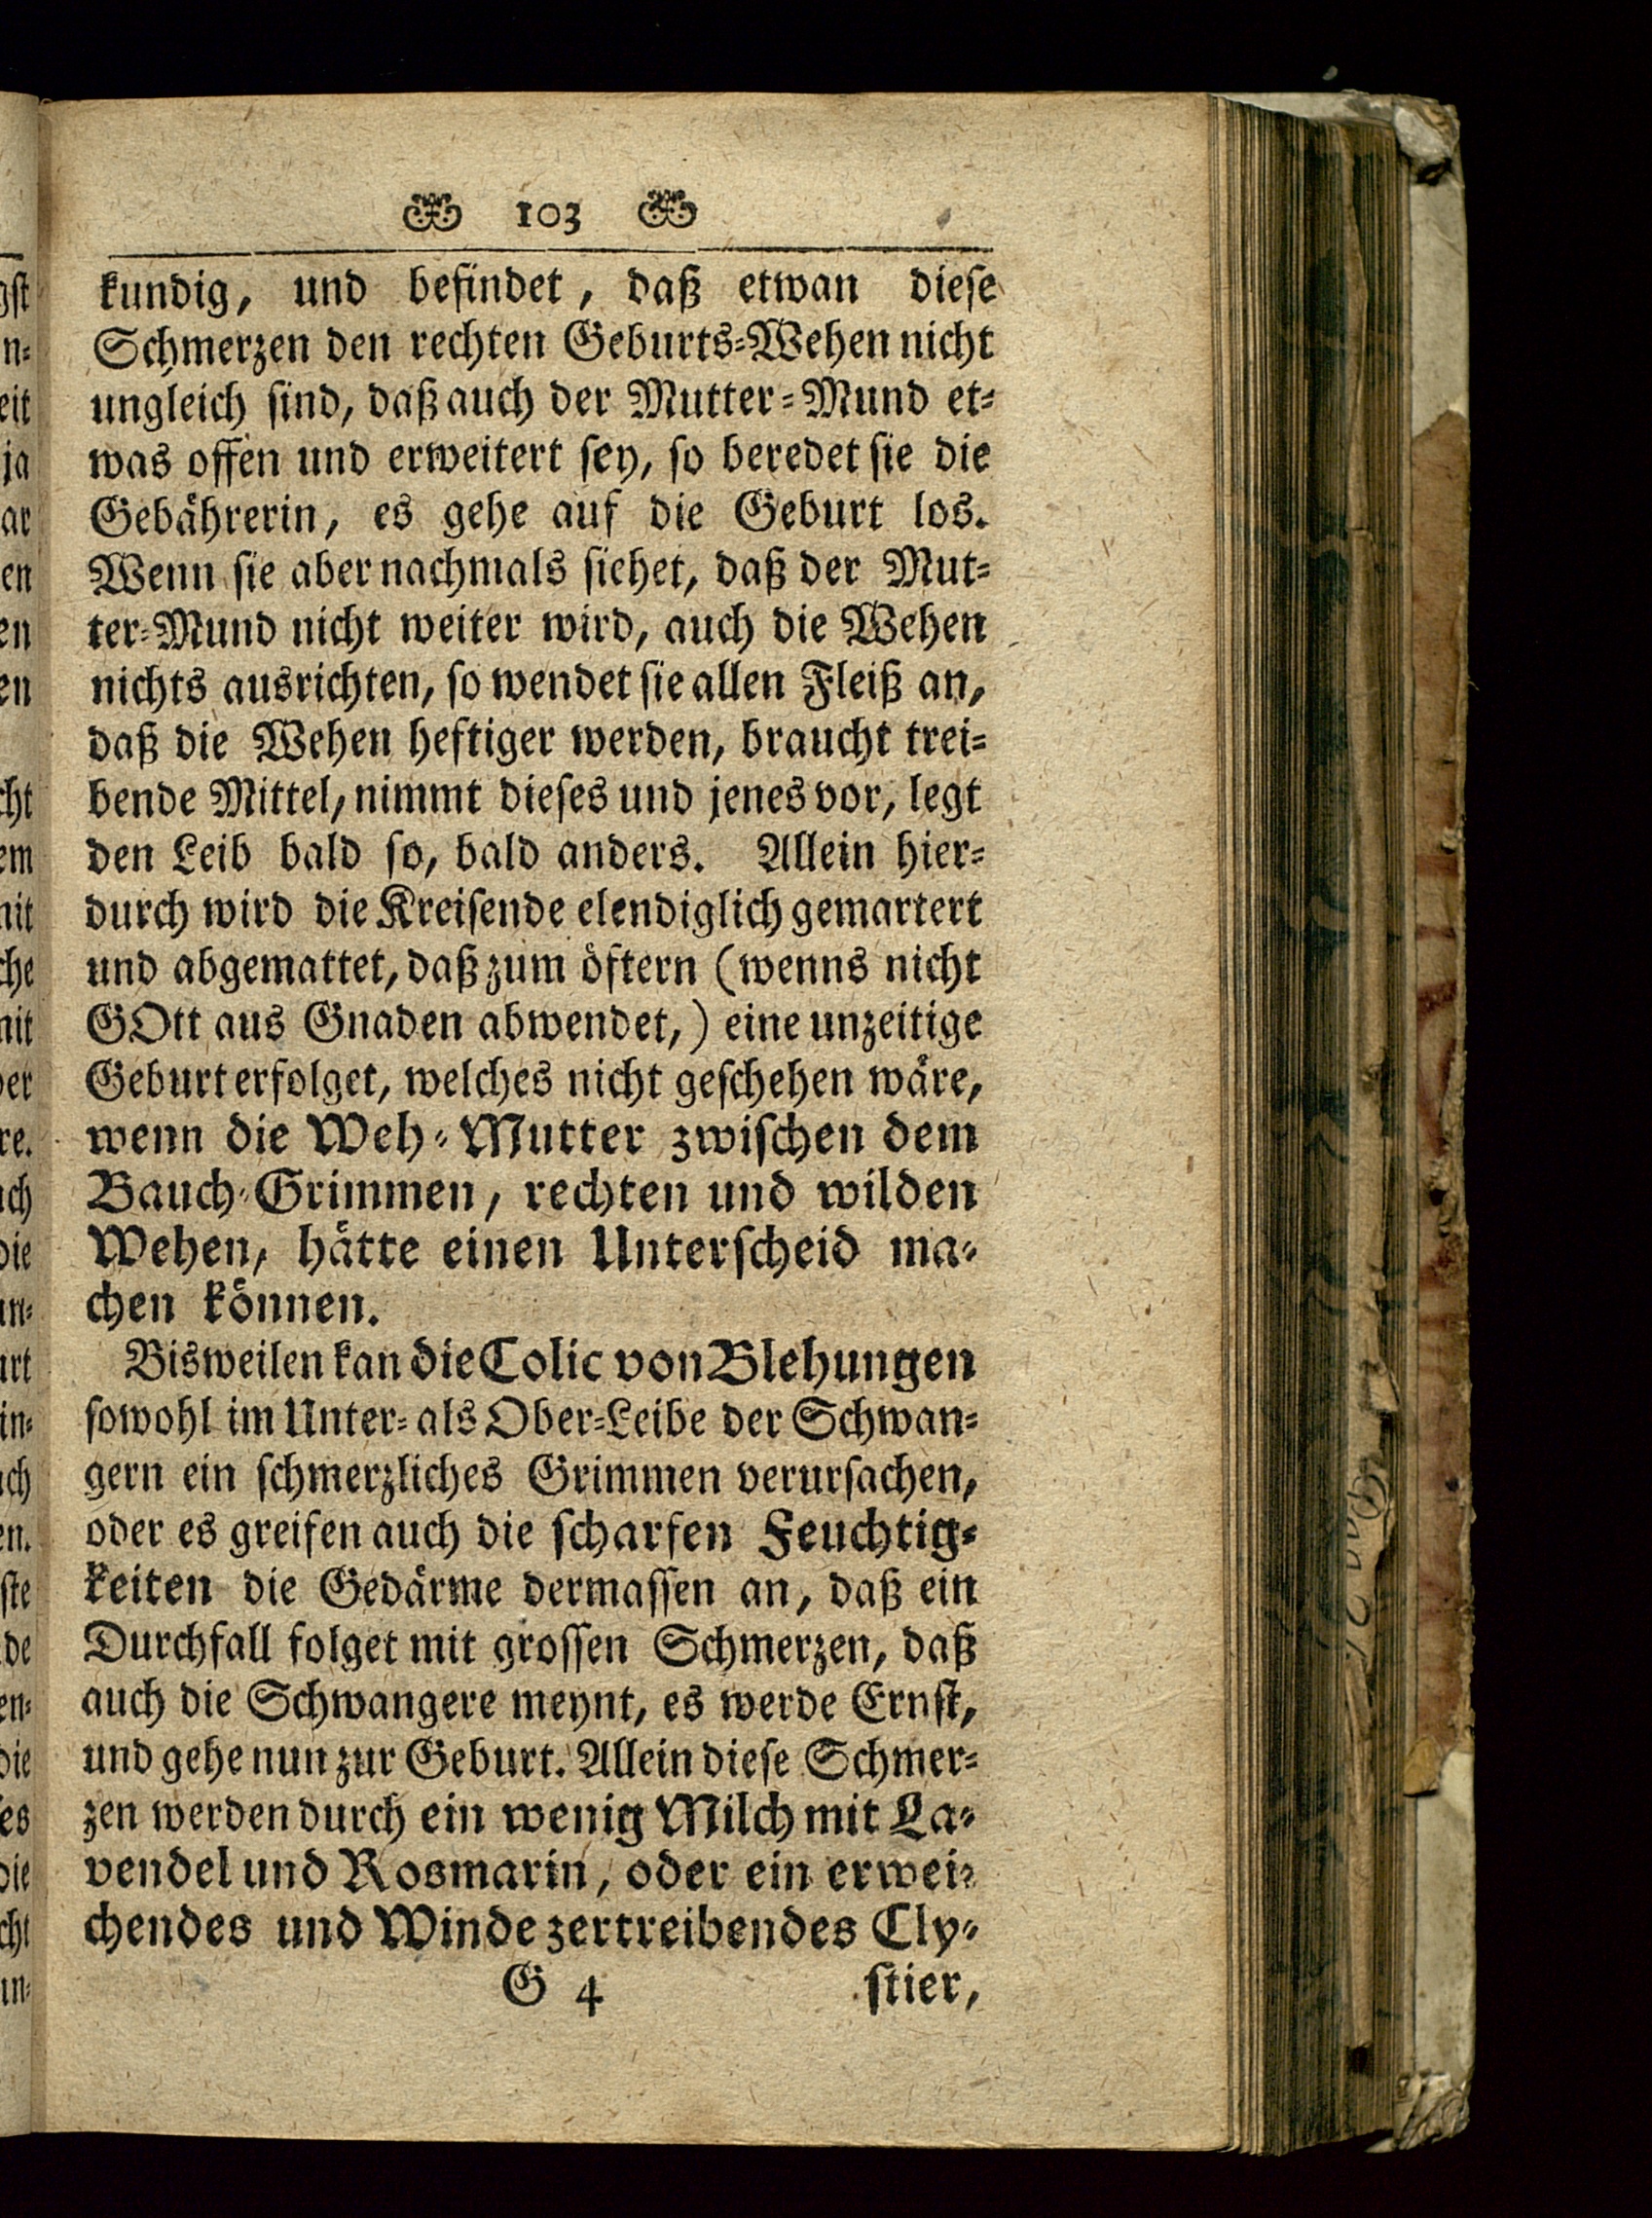 103
kundig, und befindet, daß etwan diese
Schmerzen den rechten Geburts-Wehen nicht
ungleich sind, daß auch der Mutter-Mund et-
was offen und erweitert sey, so beredet sie die
Gebährerin, es gehe auf die Geburt los.
Wenn sie aber nachmals siehet, daß der Mut-
ter-Mund nicht weiter wird, auch die Wehen
nichts ausrichten, so wendet sie allen Fleiß an,
daß die Wehen heftiger werden, braucht trei-
bende Mittel, nimmt dieses und jenes vor, legt
den Leib bald so, bald anders. Allein hier-
durch wird die Kreisende elendiglich gemartert
und abgemattet, daß zum öftern (wenns nicht
GOtt aus Gnaden abwendet,) eine unzeitige
Geburt erfolget, welches nicht geschehen wäre,
wenn die Weh-Mutter zwischen dem
Bauch-Grimmen, rechten und wilden
Wehen, hätte einen Unterscheid ma-
chen können.
Bisweilen kan die Colic von Blehungen
sowohl im Unter- als Ober-Leibe der Schwan-
gern ein schmerzliches Grimmen verursachen,
oder es greifen auch die scharfen Feuchtig-
keiten die Gedärme dermassen an, daß ein
Durchfall folget mit grossen Schmerzen, daß
auch die Schwangere meynt, es werde Ernst,
und gehe nun zur Geburt. Allein diese Schmer-
zen werden durch ein wenig Milch mit La-
vendel und Rosmarin, oder ein erwei-
chendes und Winde zertreibendes Cly-
G 4 stier,